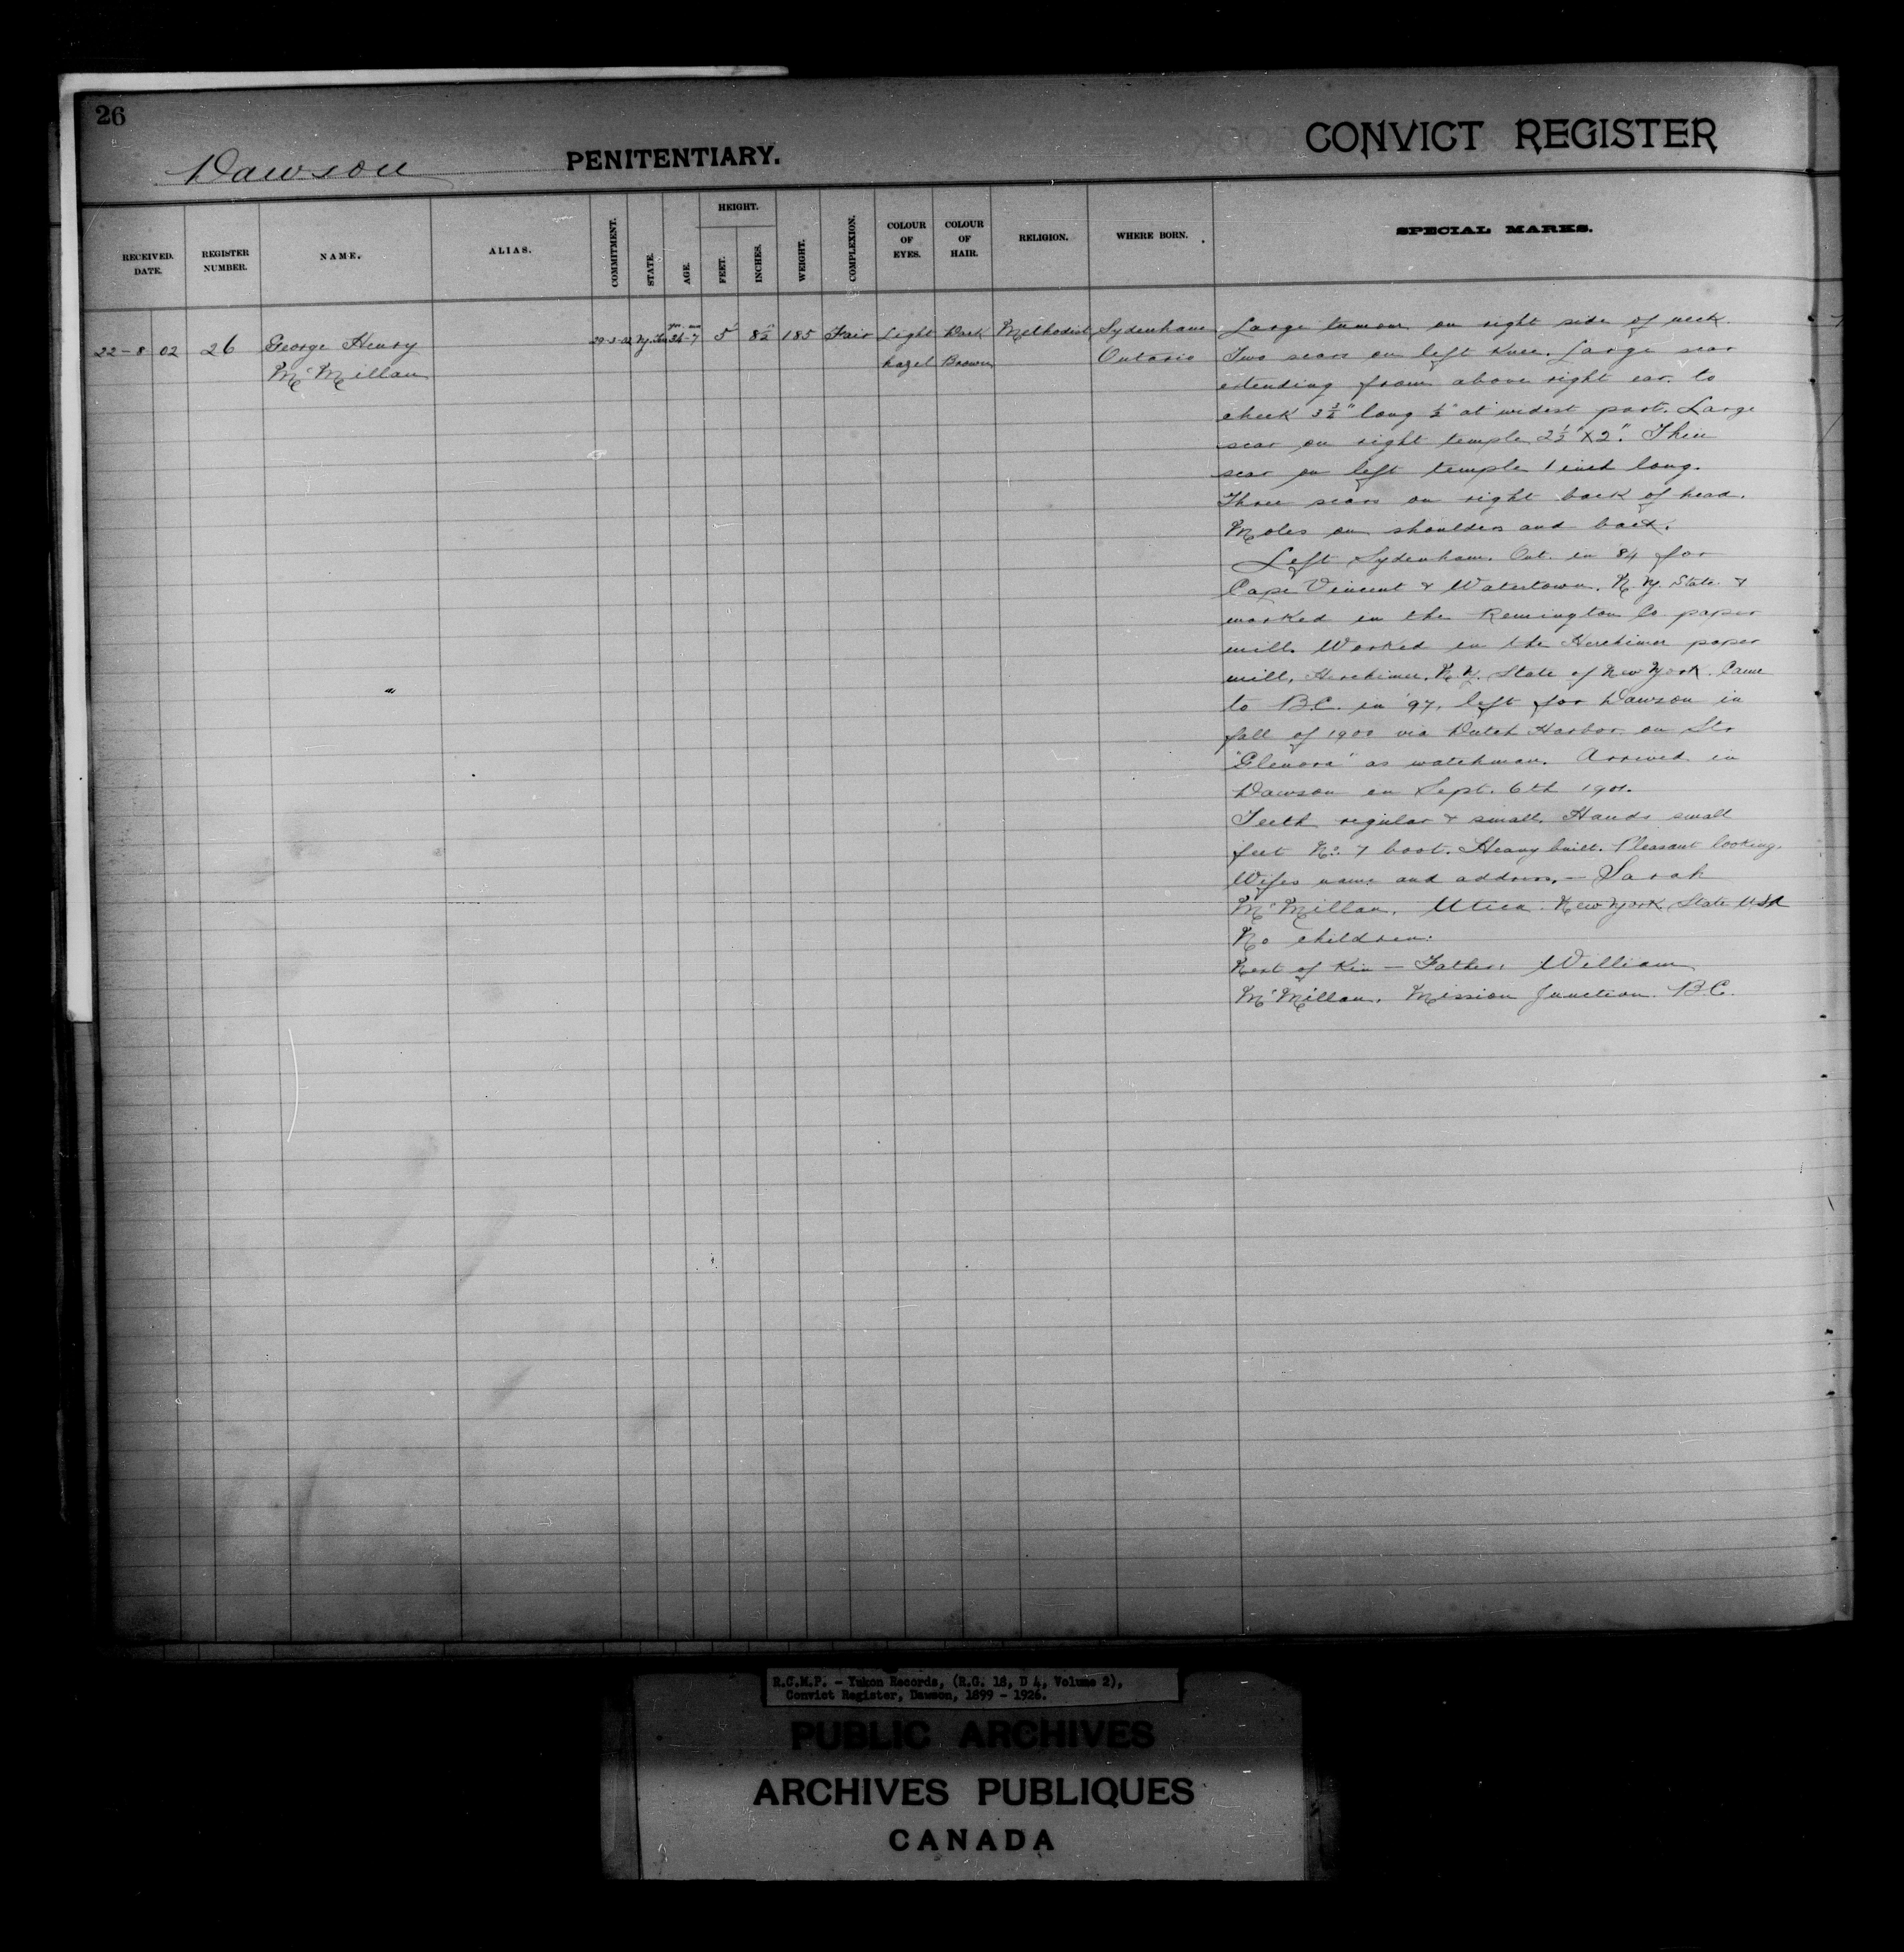 26
Dawson PENITENTIARY. CONVICT REGISTER
RECEIVED. DATE. REGISTER NUMBER. NAME. ALIAS. COMMITMENT. STATE. AGE. HEIGHT. FEET. INCHES. WEIGHT. COMPLEXION. COLOUR OF EYES. COLOUR OF HAIR. RELIGION. WHERE BORN. SPECIAL MARKS.
22-8 02 26 George Henry 5' 8½" 185 Fair Light Dark Methodist Sydenham
McMillan hazel Brown Ontario
Large tumour on right side of neck.
Two scars on left knee. Large scar
extending from above right ear to
cheek long ½" at widest part. Large
scar on right temple 2½" X 2". Thin
scar on left temple 1 inch long.
Three scars on right back of head.
Moles on shoulders and back.
Left Sydenham. Ont. in '84 for
Cape Vincent & Watertown. N.Y. State &
worked in the Remington Co. paper
mill. Worked in the Herkimer paper
mill, Herkimer, N.Y. State of New York. Came
to B.C. in '97, left for Dawson in
fall of 1900 via Dutch Harbor on Str
"Glenora" as watchman. Arrived in
Dawson on Sept. 6th 1901.
Teeth regular & small. Hands small
feet No. 7 boot. Heavy built. Pleasant looking.
Wifes name and address, — Sarah
McMillan, Utica New York State USA
No children.
Next of Kin — Father, William
McMillan. Mission Junction. B.C.
R.C.M.P. - Yukon Records, (R.G. 18, D 4, Volume 2),
Convict Register, Dawson, 1899 - 1926.
PUBLIC ARCHIVES
ARCHIVES PUBLIQUES
CANADA